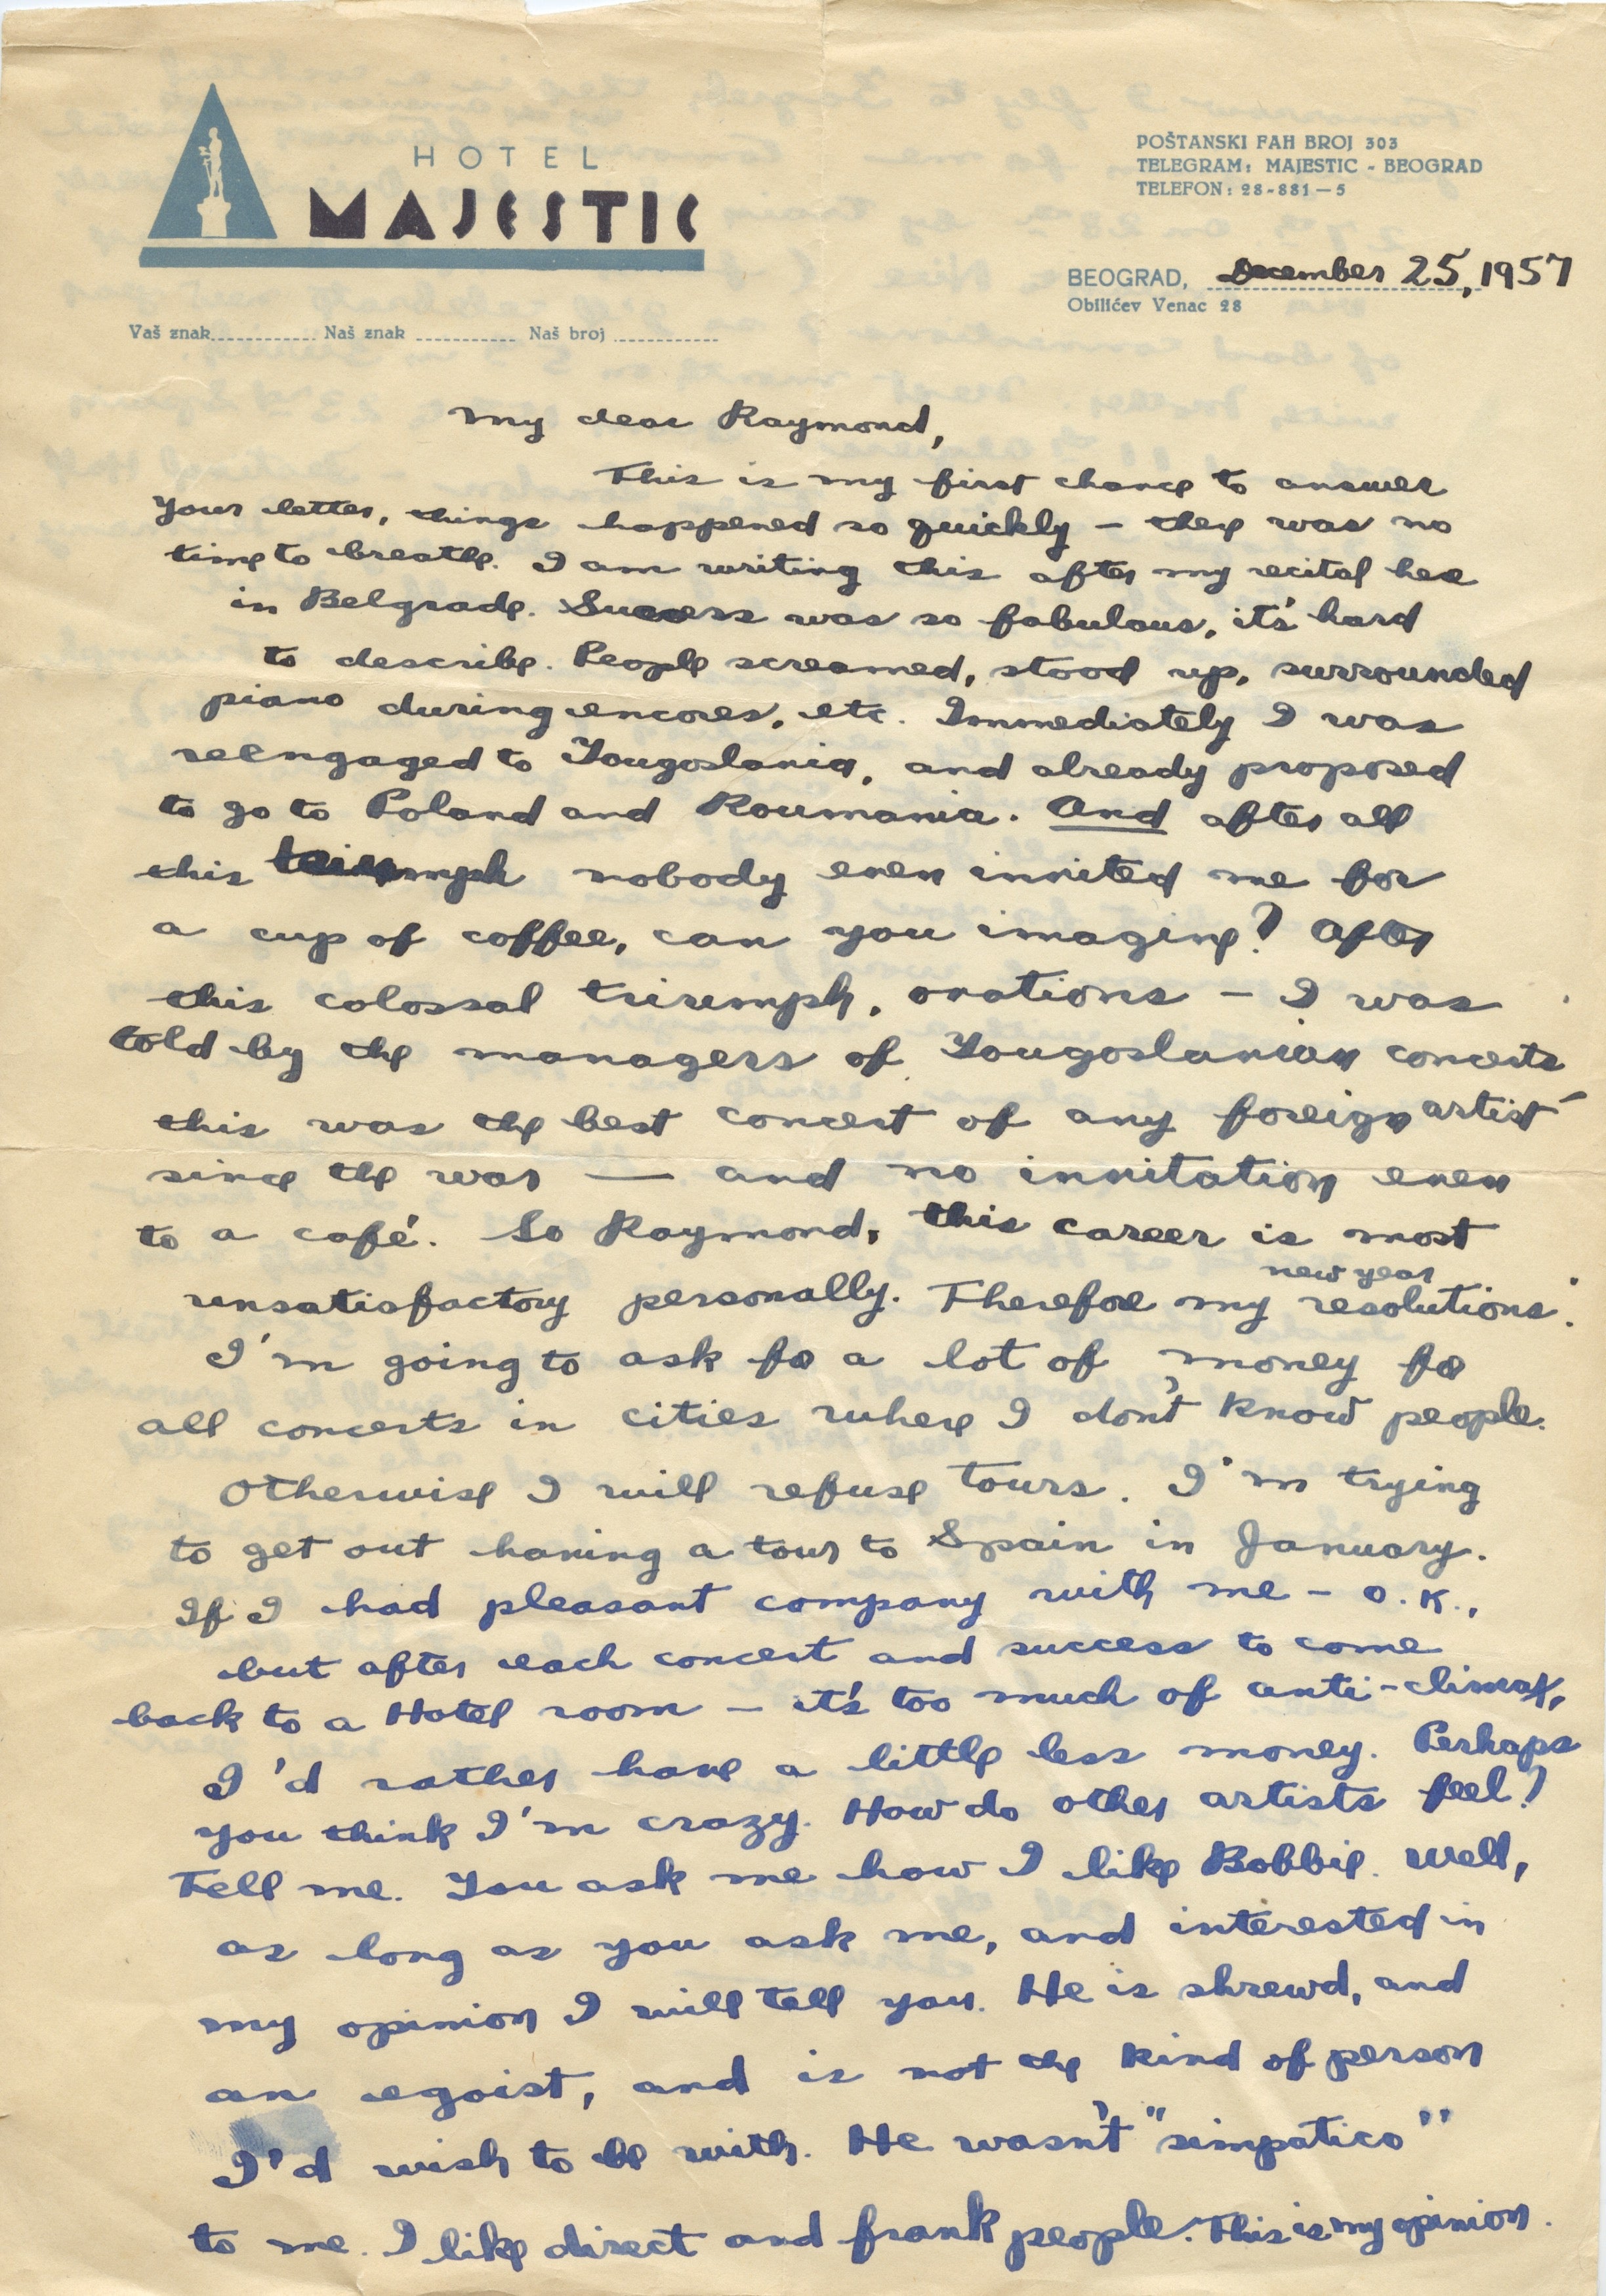 HOTEL
MAJESTIC
POŠTANSKI FAH BROJ 303
TELEGRAM: MAJESTIC - BEOGRAD
TELEFON: 28-881-5
BEOGRAD, December 25, 1957
Obilićev Venac 28
Vaš znak............ Naš znak ............ Naš broj ............
My dear Raymond,
This is my first chance to answer
your letter, things happened so quickly – there was no
time to breathe. I am writing this after my recital here
in Belgrade. Success was so fabulous, it's hard
to describe. People screamed, stood up, surrounded
piano during encores, etc. Immediately I was
reengaged to Yougoslavia, and already proposed
to go to Poland and Roumania. And after all
this triumph nobody even invited me for
a cup of coffee, can you imagine? After
this colossal triumph, ovations – I was
told by the managers of Yougoslavian concerts
this was the best concert of any foreign artist
since the war — and no invitation even
to a café. So Raymond, this career is most
unsatisfactory personally. Therefore my new year resolutions:
I'm going to ask for a lot of money for
all concerts in cities where I don't know people.
Otherwise I will refuse tours. I'm trying
to get out having a tour to Spain in January.
If I had pleasant company with me – O.K.,
but after each concert and success to come
back to a Hotel room – it's too much of anti-climax,
I'd rather have a little less money. Perhaps
you think I'm crazy. How do other artists feel?
Tell me. You ask me how I like Bobbie. Well,
as long as you ask me, and interested in
my opinion I will tell you. He is shrewd, and
an egoist, and is not the kind of person
I'd wish to be with. He wasn't "simpatico"
to me. I like direct and frank people. This is my opinion.